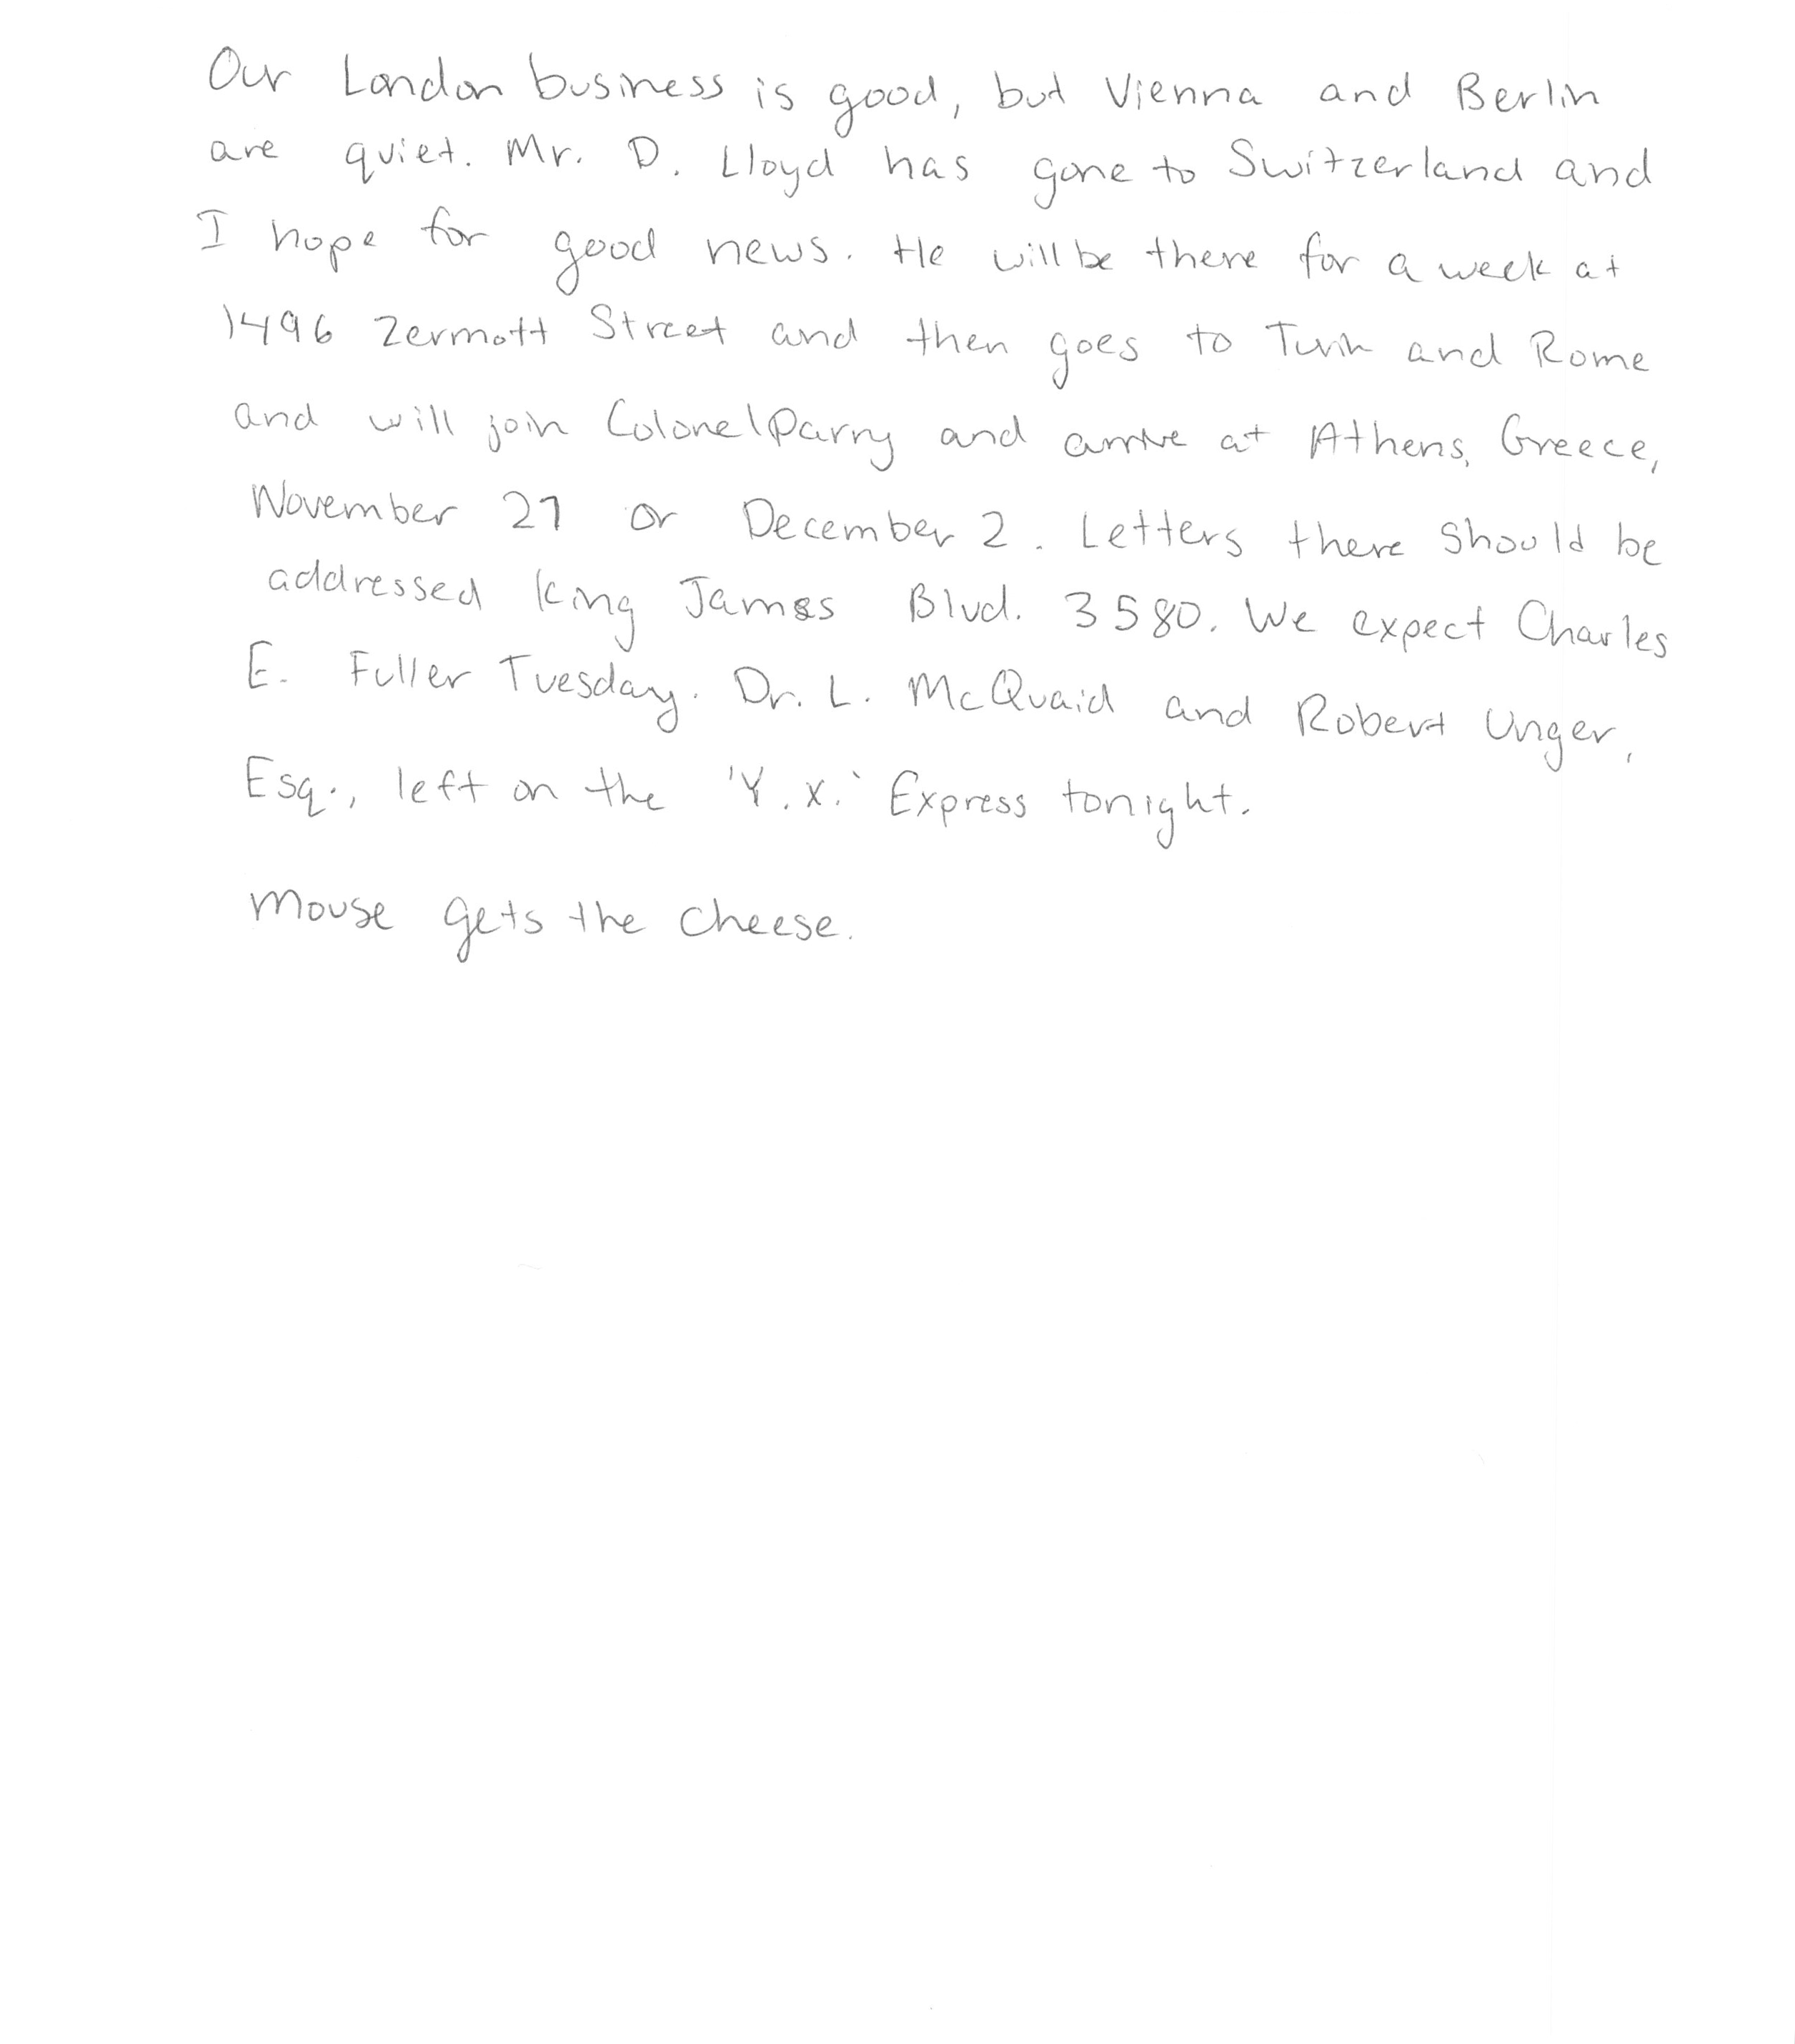 Our London business is good, but Vienna and Berlin
are quiet. Mr. D. Lloyd has gone to Switzerland and
I hope for good news. He will be there for a week at
1496 Zermott Street and then goes to Turin and Rome
and will join Colonel Parry and arrive at Athens, Greece,
November 27 or December 2. Letters there should be
addressed King James Blvd. 3580. We expect Charles
E. Fuller Tuesday. Dr. L. McQuaid and Robert Unger,
Esq., left on the 'Y.X.' Express tonight.
Mouse gets the cheese.